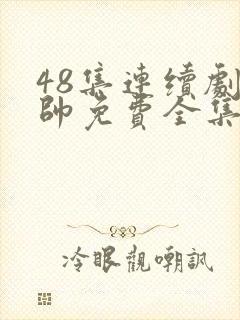 48集連續劇
帥免費全集
冷眼觀嘲訊